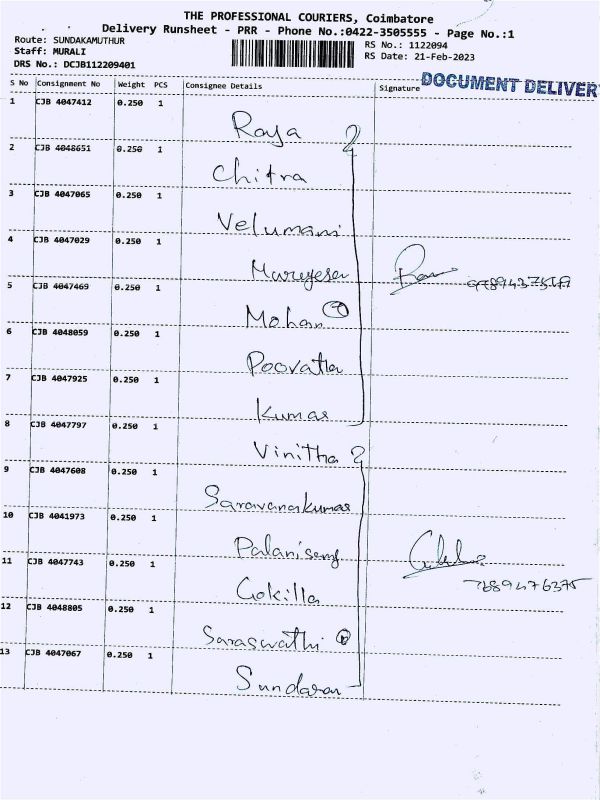 THE PROFESSIONAL COURIERS, Coimbatore
Delivery Runsheet - PRR - Phone No.:0422-3505555 - Page No.:1
Route: SUNDAKAMUTHUR
Staff: MURALI
DRS No.: DCJB112209401
RS No.: 1122094
RS Date: 21-Feb-2023
DOCUMENT DELIVER
S No Consignment No Weight PCS Consignee Details Signature
1 CJB 4047412 0.250 1 Raja
2 CJB 4048651 0.250 1 Chitra
3 CJB 4047065 0.250 1 Velumani
4 CJB 4047029 0.250 1
5 CJB 4047469 0.250 1 Mohan 7
6 CJB 4048059 0.250 1
7 CJB 4047925 0.250 1 Kumar
8 CJB 4047797 0.250 1 Vinitha
9 CJB 4047608 0.250 1 Saravanakumar
10 CJB 4041973 0.250 1
11 CJB 4047743 0.250 1 Gokilla
7689476375
12 CJB 4048805 0.250 1 Saraswathi
13 CJB 4047067 0.250 1 Sundaran